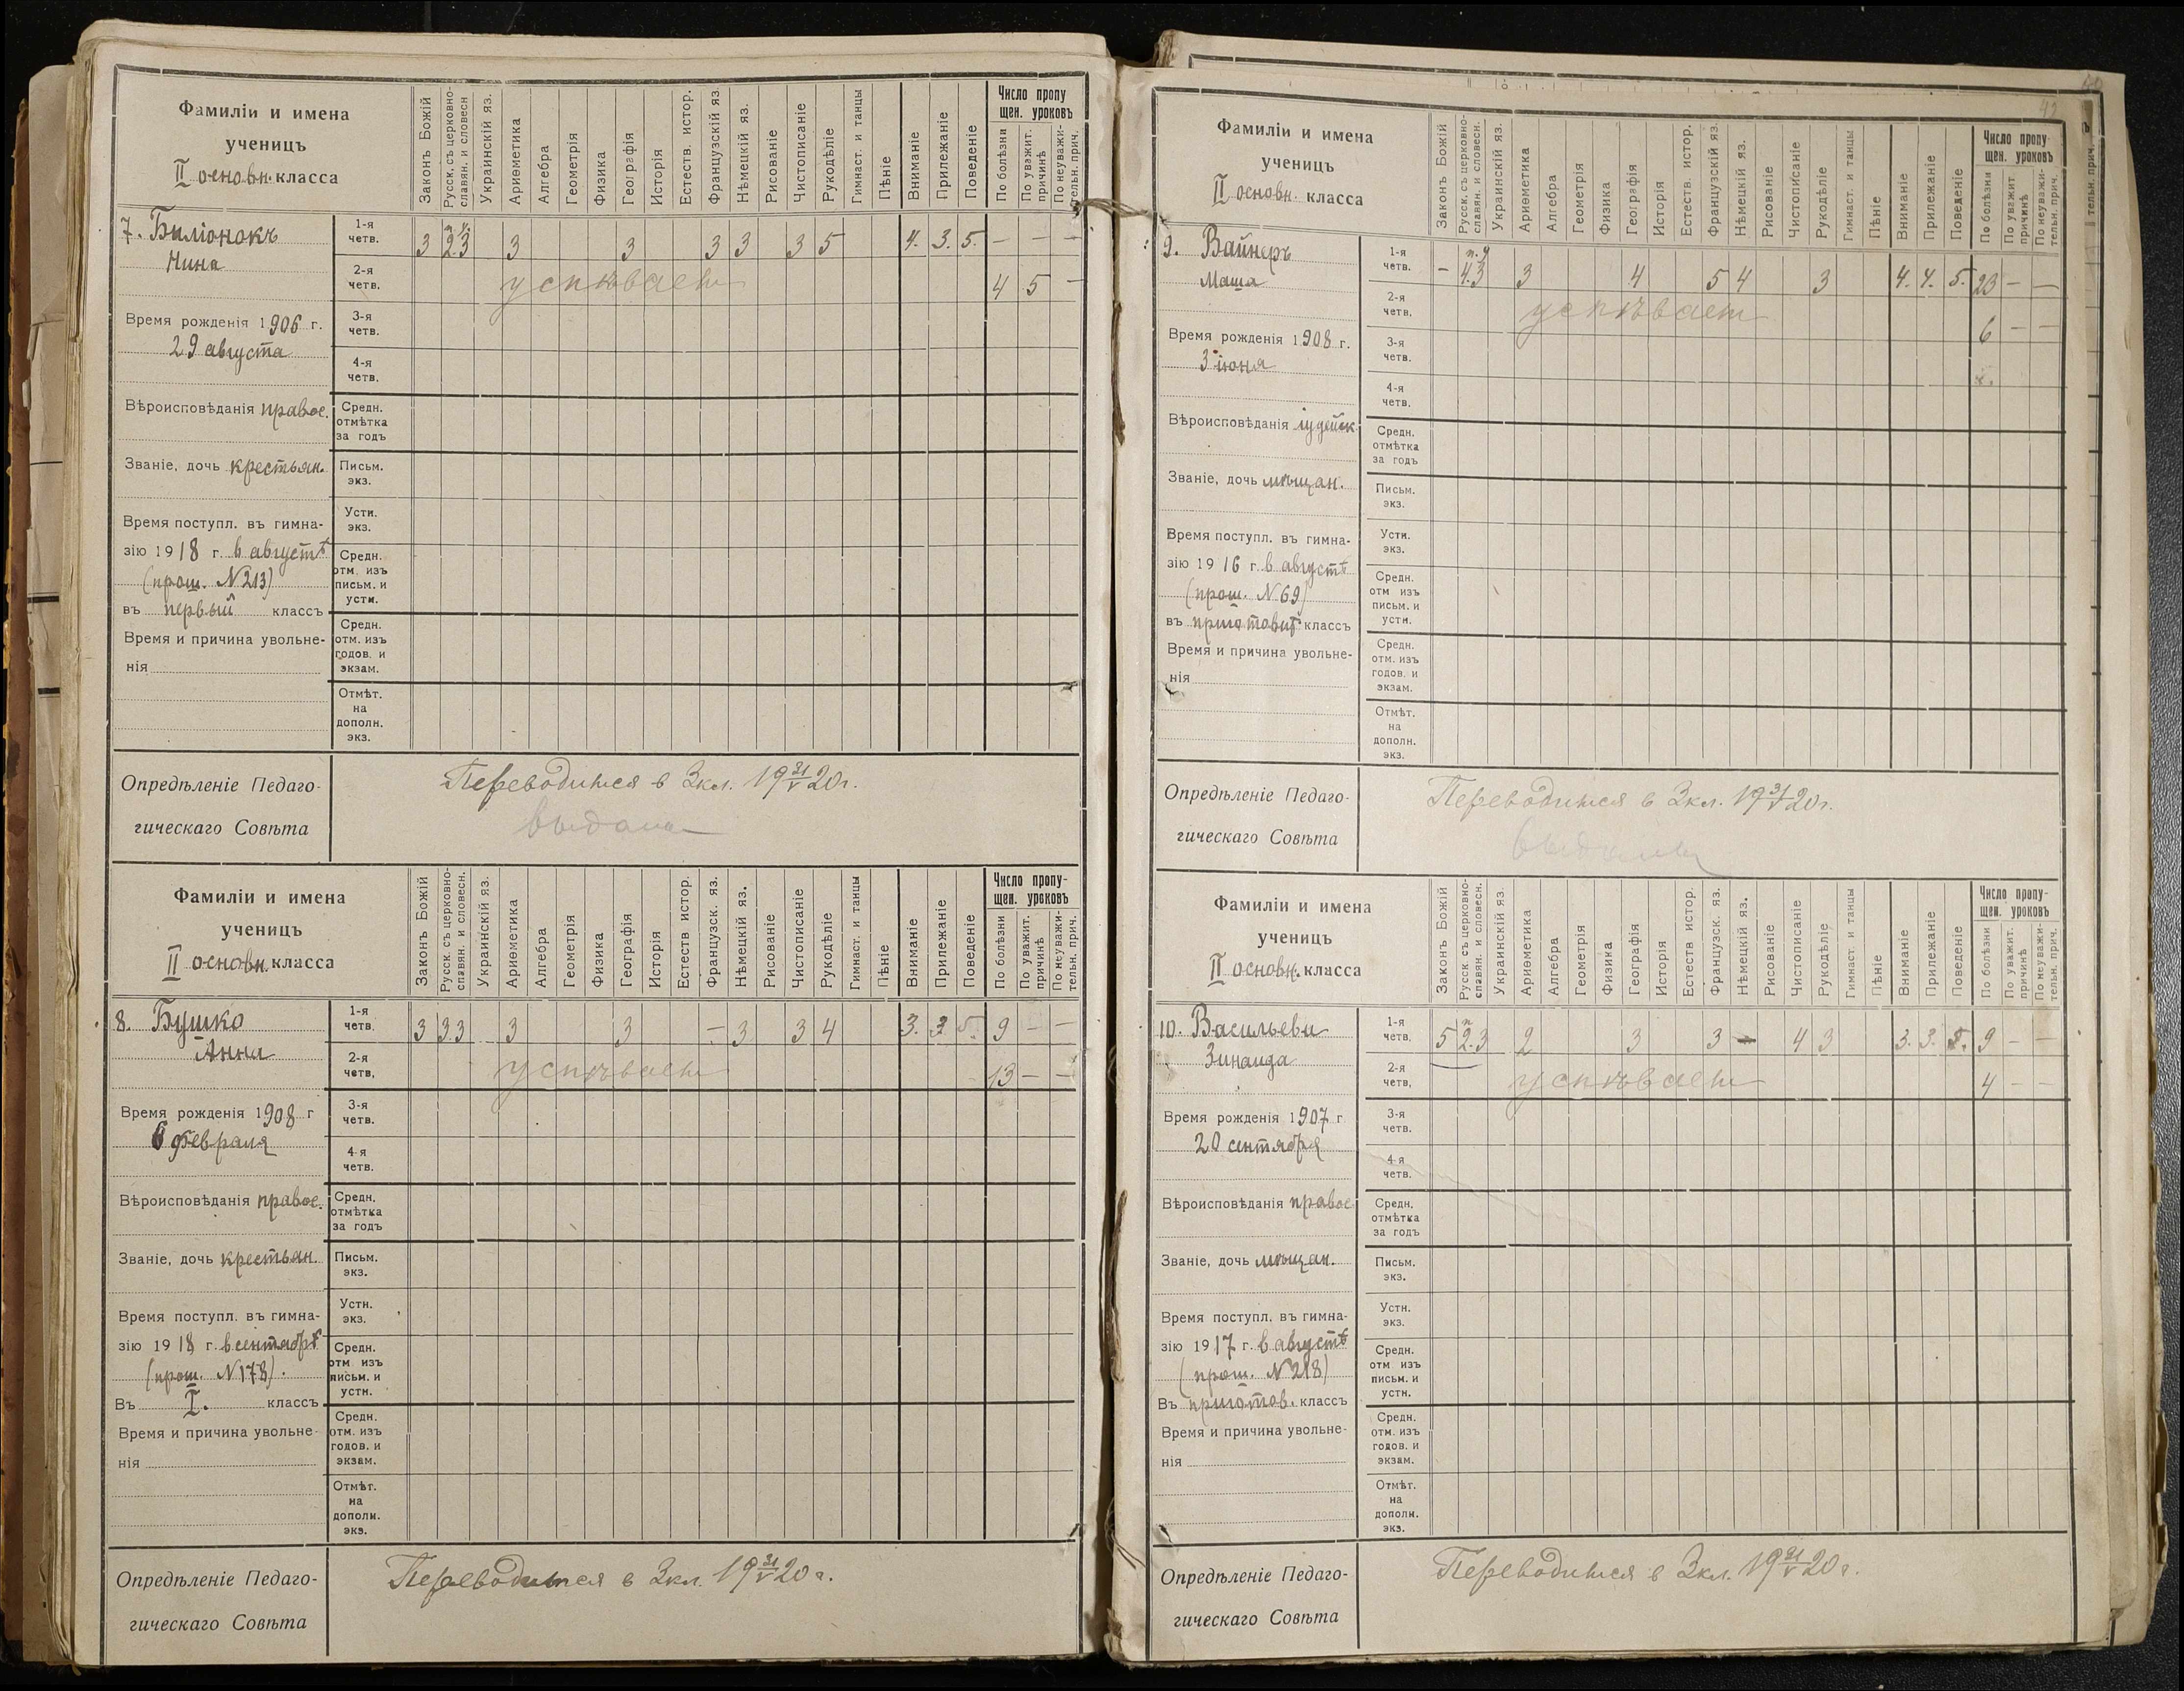 Фамиліи и имена
ученицъ
II основн. класса
Законъ Божій
Русск. съ церковно-
славян. и словесн
Украинскій яз.
Ариѳметика
Алгебра
Геометрія
Физика
Географія
Исторія
Естеств. истор.
Французскій яз
Нѣмецкій яз.
Рисованіе
Чистописаніе
Рукодѣліе
Гимнаст. и танцы
Пѣніе
Вниманіе
Прилежаніе
Поведеніе
Число пропу
щен. уроковъ
По болѣзни
По уважит.
причинѣ
По неуважи-
тельн. прич.
7. Биліонокъ
Нина
Время рожденія 1906 г.
29 августа
Вѣроисповѣданія правос.
Званіе, дочь крестьян.
Время поступл. въ гимна-
зію 1918 г. в августѣ
(прош. N 213)
въ первый классъ
Время и причина увольне-
нія
1-я
четв.
3 2.3 3 3 3 3 3 5 4. 3. 5. — — —
2-я
четв.
успѣвает 4 5 —
3-я
четв.
4-я
четв.
Средн.
отмѣтка
за годъ
Письм.
экз.
Устн.
экз.
Средн.
отм. изъ
письм. и
устн.
Средн.
отм. изъ
годов. и
экзам.
Отмѣт.
на
дополн.
экз.
Опредѣленіе Педаго-
гическаго Совѣта
Переводится в 3 кл. 19 31/V 20 г.
Фамиліи и имена
ученицъ
II основн. класса
Законъ Божій
Русск. съ церковно-
славян. и словесн.
Украинскій яз.
Ариѳметика
Алгебра
Геометрія
Физика
Географія
Исторія
Естеств истор.
Французск. яз.
Нѣмецкій яз.
Рисованіе
Чистописаніе
Рукодѣліе
Гимнаст. и танцы
Пѣніе
Вниманіе
Прилежаніе
Поведеніе
Число пропу-
щен. уроковъ
По болѣзни
По уважит.
причинѣ
По неуважи-
тельн. прич.
8. Бушко
Анна
Время рожденія 1908 г
6 февраля
Вѣроисповѣданія правос.
Званіе, дочь крестьян.
Время поступл. въ гимна-
зію 1918 г. в сентябрѣ
(прош. N 178).
Въ I. классъ
Время и причина увольне-
нія
1-я
четв.
3 3.3 3 3 — 3 3 4 3. 3. 5. 9 — —
2-я
четв.
успѣвает 13 — —
3-я
четв.
4-я
четв.
Средн.
отмѣтка
за годъ
Письм.
экз.
Устн.
экз.
Средн.
отм изъ
письм. и
устн.
Средн.
отм. изъ
годов. и
экзам.
Отмѣт.
на
дополн.
экз.
Опредѣленіе Педаго-
гическаго Совѣта
Переводится в 3 кл. 19 31/V 20 г.
Фамиліи и имена
ученицъ
II основн. класса
Законъ Божій
Русск. съ церковно-
славян. и словесн.
Украинскій яз.
Ариѳметика
Алгебра
Геометрія
Физика
Географія
Исторія
Естеств. истор.
Французскій яз.
Нѣмецкій яз.
Рисованіе
Чистописаніе
Рукодѣліе
Гимнаст. и танцы
Пѣніе
Вниманіе
Прилежаніе
Поведеніе
Число пропу-
щен. уроковъ
По болѣзни
По уважит.
причинѣ
По неуважи-
тельн. прич.
9. Вайнеръ
Маша
Время рожденія 1908 г.
3 іюня
Вѣроисповѣданія іудейск.
Званіе, дочь мѣщан.
Время поступл. въ гимна-
зію 1916 г. в августѣ
(прош. N 69)
въ приготовит. классъ
Время и причина увольне-
нія
1-я
четв.
— 4.3 3 4 5 4 3 4. 4. 5. 23 — —
2-я
четв.
успѣвает 6 — —
3-я
четв.
4-я
четв.
Средн.
отмѣтка
за годъ
Письм.
экз.
Устн.
экз.
Средн.
отм изъ
письм. и
устн.
Средн.
отм. изъ
годов. и
экзам.
Отмѣт.
на
дополн.
экз.
Опредѣленіе Педаго-
гическаго Совѣта
Переводится в 3 кл. 19 31/V 20 г.
Фамиліи и имена
ученицъ
II основн. класса
Законъ Божій
Русск. съ церковно-
славян. и словесн.
Украинскій яз.
Ариѳметика
Алгебра
Геометрія
Физика
Географія
Исторія
Естеств истор.
Французск. яз.
Нѣмецкій яз.
Рисованіе
Чистописаніе
Рукодѣліе
Гимнаст. и танцы
Пѣніе
Вниманіе
Прилежаніе
Поведеніе
Число пропу-
щен. уроковъ
По болѣзни
По уважит.
причинѣ
По неуважи-
тельн. прич.
10. Васильева
Зинаида
Время рожденія 1907 г
20 сентября
Вѣроисповѣданія правос
Званіе, дочь мѣщан.
Время поступл. въ гимна-
зію 1917 г. в августѣ
(прош. N 218)
Въ приготов. классъ
Время и причина увольне-
нія
1-я
четв.
5 2.3 2 3 3 — 4 3 3. 3. 5. 9 — —
2-я
четв,
успѣвает 4 — —
3-я
четв.
4-я
четв.
Средн.
отмѣтка
за годъ
Письм.
экз.
Устн.
экз.
Средн.
отм изъ
письм. и
устн.
Средн.
отм. изъ
годов. и
экзам.
Отмѣт.
на
дополн.
экз.
Опредѣленіе Педаго-
гическаго Совѣта
Переводится в 3 кл. 19 31/V 20 г.